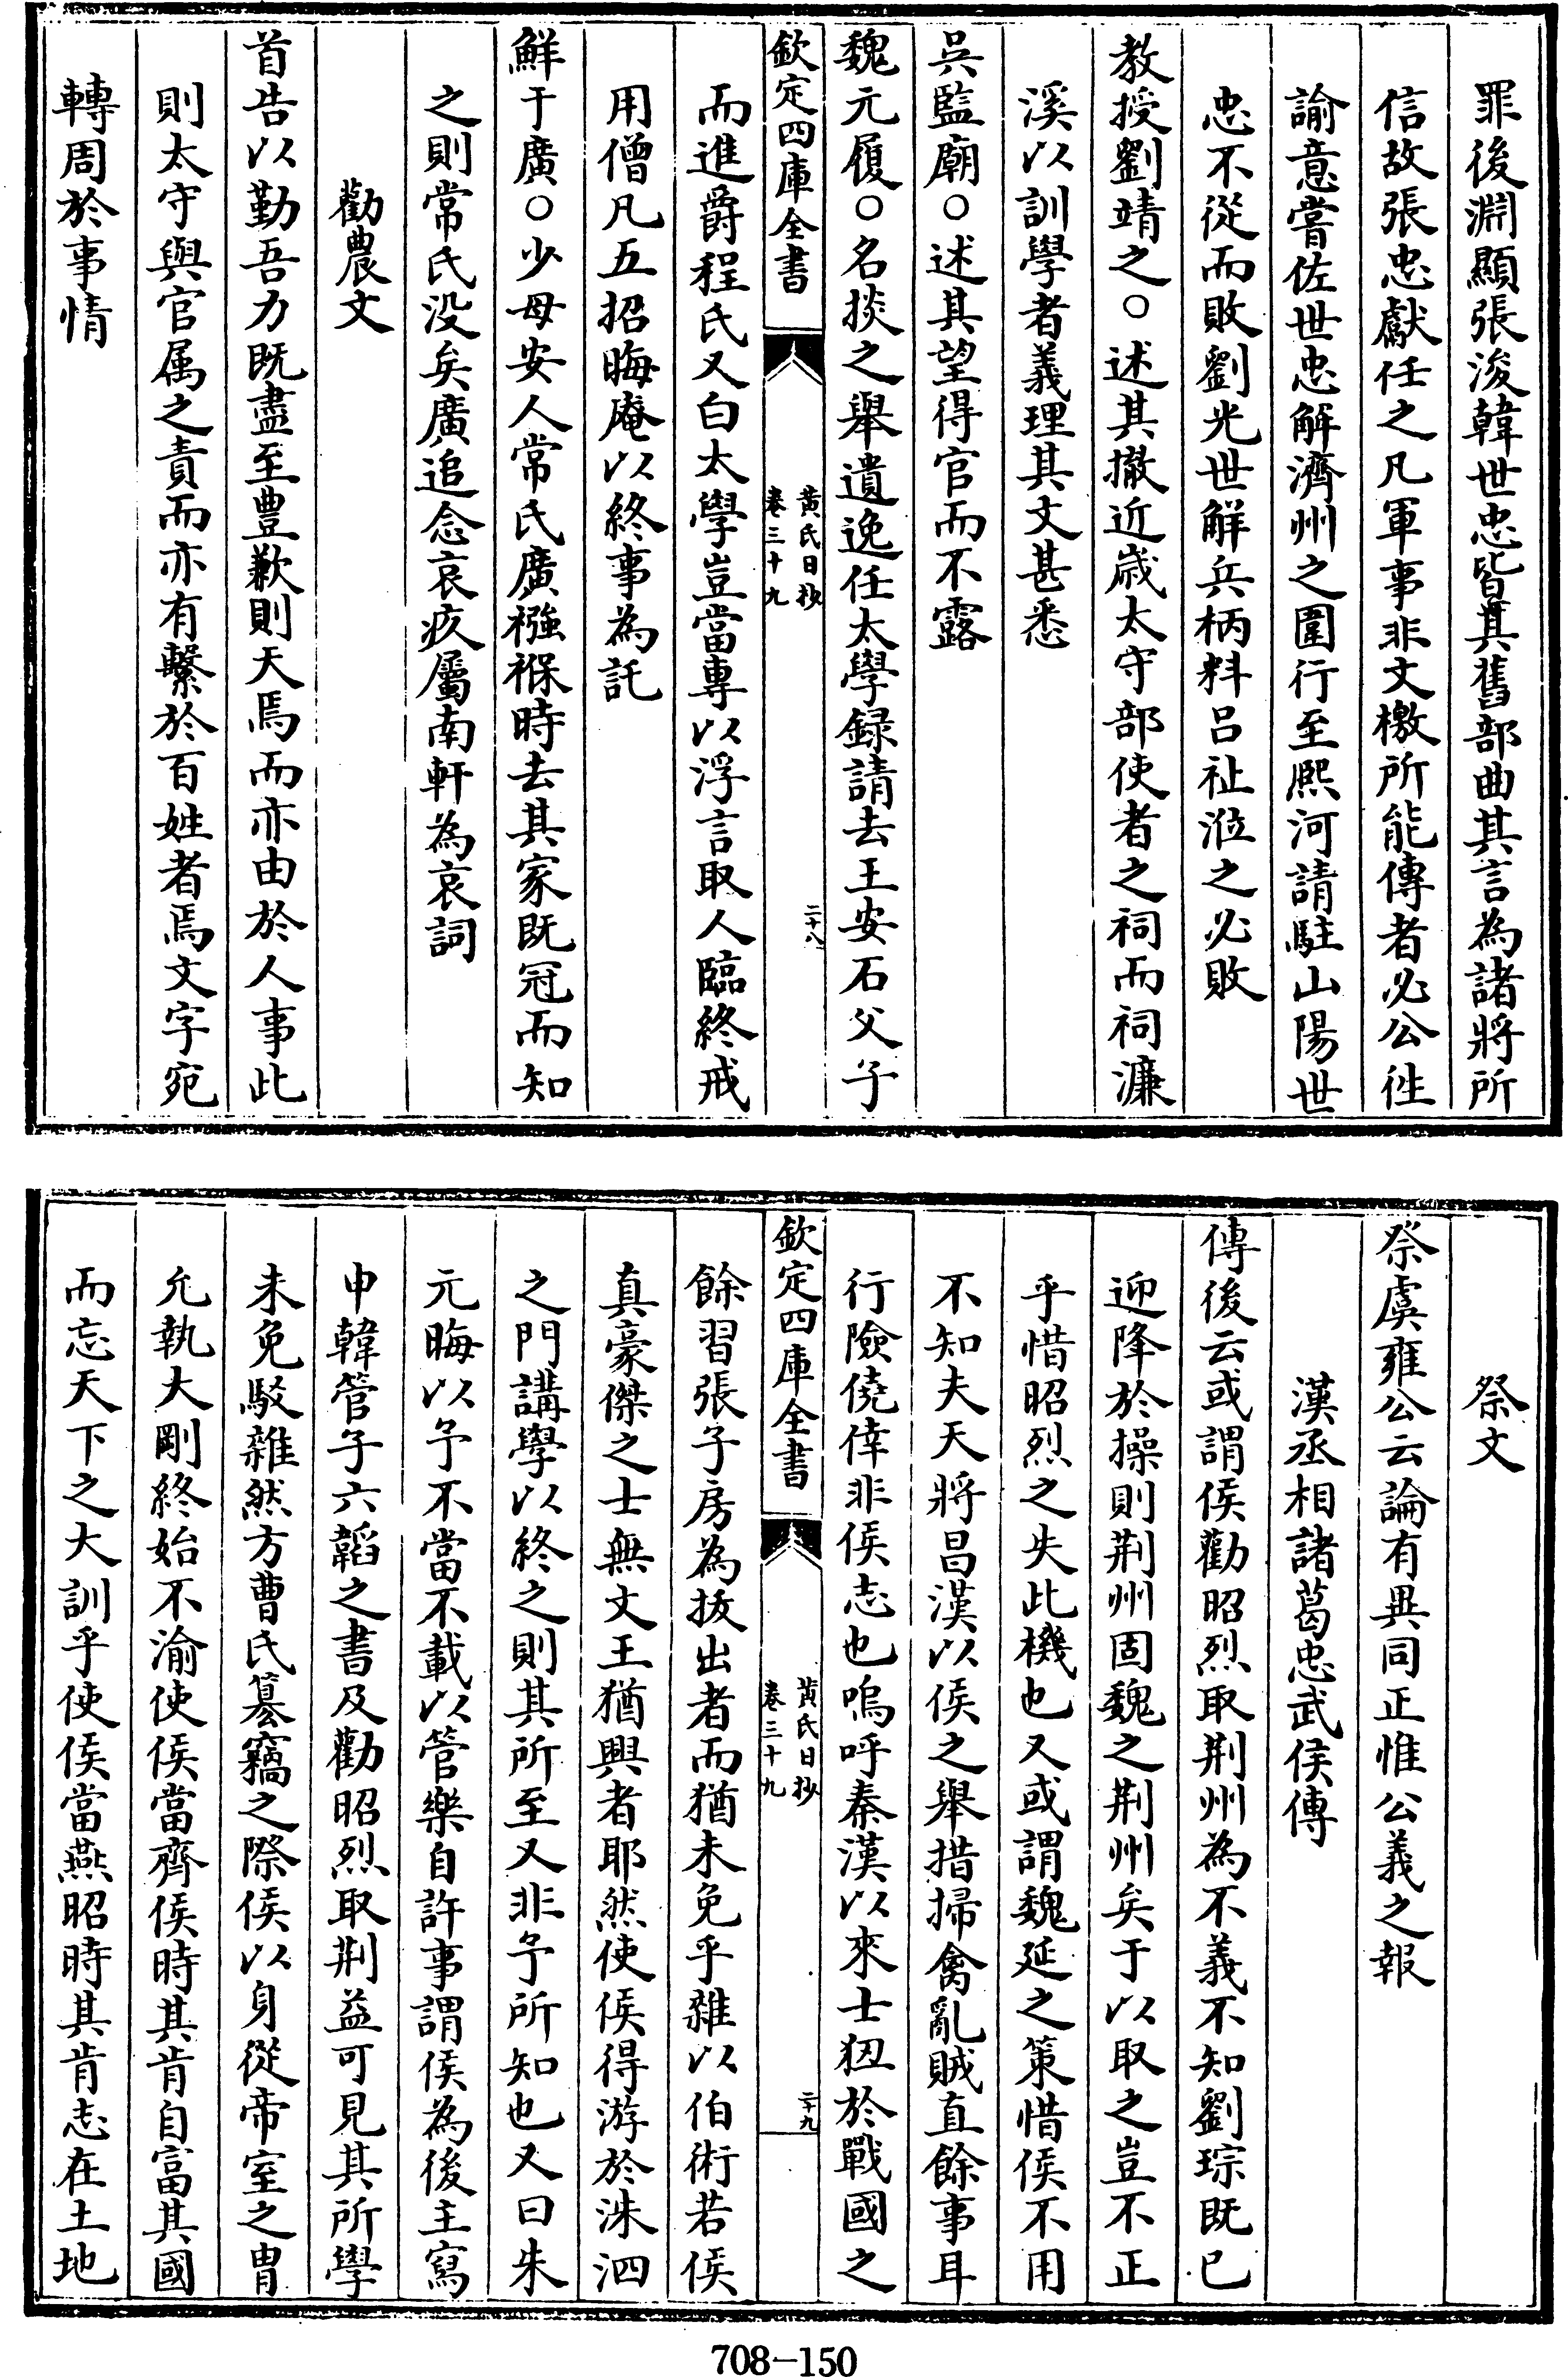 罪後淵顯張浚韓世忠皆其舊部曲其言為諸將所
信故張忠獻任之凡軍事非文檄所能傳者必公往
諭意嘗佐世忠解濟州之圍行至熙河請駐山陽世
忠不從而敗劉光世解兵柄料吕祉涖之必敗
教授劉靖之○述其撤近歲太守部使者之祠而祠濂
溪以訓學者義理其文甚悉
吳監廟○述其望得官而不露
魏元履○名掞之舉遺逸任太學録請去王安石父子
欽定四庫全書
黄氏日抄
卷三十九
二十八
而進爵程氏又白太學豈當專以浮言取人臨終戒
用僧凡五招晦庵以終事為託
鮮于廣○少母安人常氏廣襁褓時去其家既冠而知
之則常氏没矣廣追念哀疚屬南軒為哀詞
勸農文
首告以勤吾力既盡至豊歉則天焉而亦由於人事此
則太守與官属之責而亦有繫於百姓者焉文字宛
轉周於事情
祭文
祭虞雍公云論有異同正惟公義之報
漢丞相諸葛忠武侯傳
傳後云或謂侯勸昭烈取荆州為不義不知劉琮既已
迎降於操則荆州固魏之荆州矣于以取之豈不正
乎惜昭烈之失此機也又或謂魏延之策惜侯不用
不知夫天將昌漢以侯之舉措掃禽亂賊直餘事耳
行險僥倖非侯志也嗚呼秦漢以來士狃於戰國之
欽定四庫全書
黄氏日抄
卷三十九
二十九
餘習張子房為拔出者而猶未免乎雜以伯術若侯
真豪傑之士無文王猶興者耶然使侯得游於洙泗
之門講學以終之則其所至又非予所知也又曰朱
元晦以予不當不載以管樂自許事謂侯為後主寫
申韓管子六韜之書及勸昭烈取荆益可見其所學
未免駁雜然方曹氏簒竊之際侯以身從帝室之胄
允執大剛終始不渝使侯當齊侯時其肯自富其國
而忘天下之大訓乎使侯當燕昭時其肯志在土地
708-150